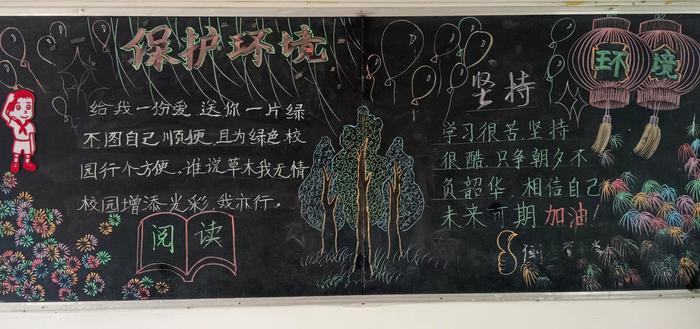 保护环境
给我一份爱,送你一片绿
不图自己顺便,且为绿色校
园行个方便。谁说草木我无情
校园增添光彩,我亦行。
阅读
坚持
学习很苦,坚持
很酷,只争朝夕不
负韶华,相信自己
未来可期 加油!
环境